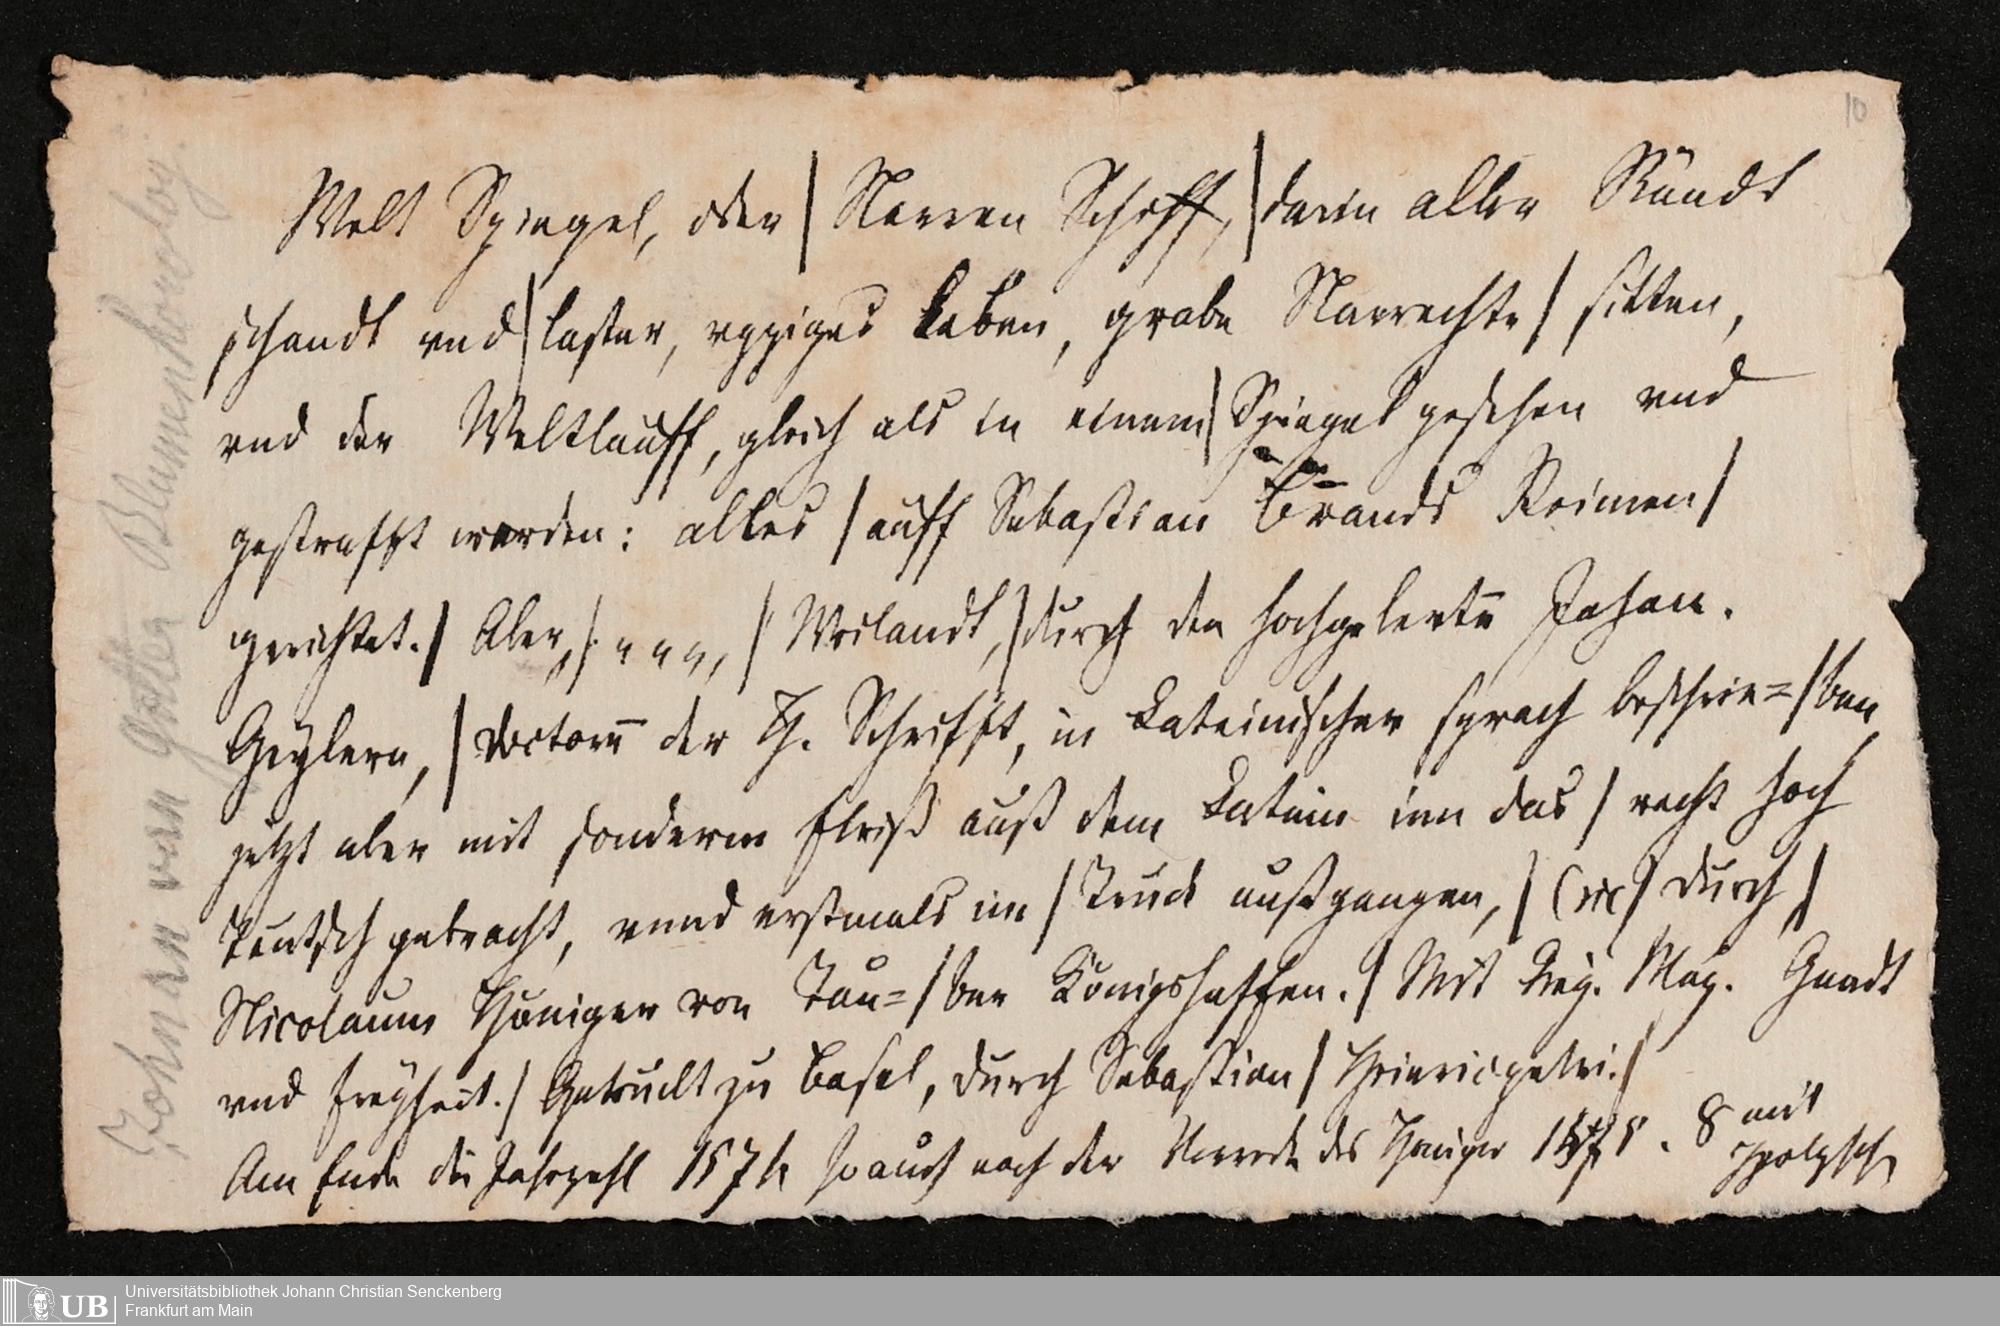 10
Welt Spiegel, oder | Narren Schiff, | darin aller Ständt
schandt vnd | laster, vppiges Leben, grobe Narrechte | sitten,
vnd der Weltlauff, gleich als in einem | Spiegel gesehen vnd
gestrafft werden: alles | auff Sebastian Brands Reimen |
gerichtet. | Aber, | | Weilandt, | durch den hochgelertē Johan.
Geylern, | doctorē der H. Schrifft, in Lateinischer sprach beschrie= | ben,
jetzt aber mit sonderm fleiß auß dem Latein inn das | recht hoch
Teutsch gebracht, vnnd erstmals im | Truck außgangen, | (sic) durch |
Nicolaum Höniger von Tau= | ber Königshoffen. | Mit Key. May. Gnadt
vnd freyheit. | Getruckt zu Basel, durch Sebastian | Heinricpetri. |
Am Ende die Jahrzahl 1574 so auch nach der Vorrede des Höniger . 8 mit
Holzsch.
Johnden von Blumenkorolog.
Universitätsbibliothek Johann Christian Senckenberg
Frankfurt am Main
UB